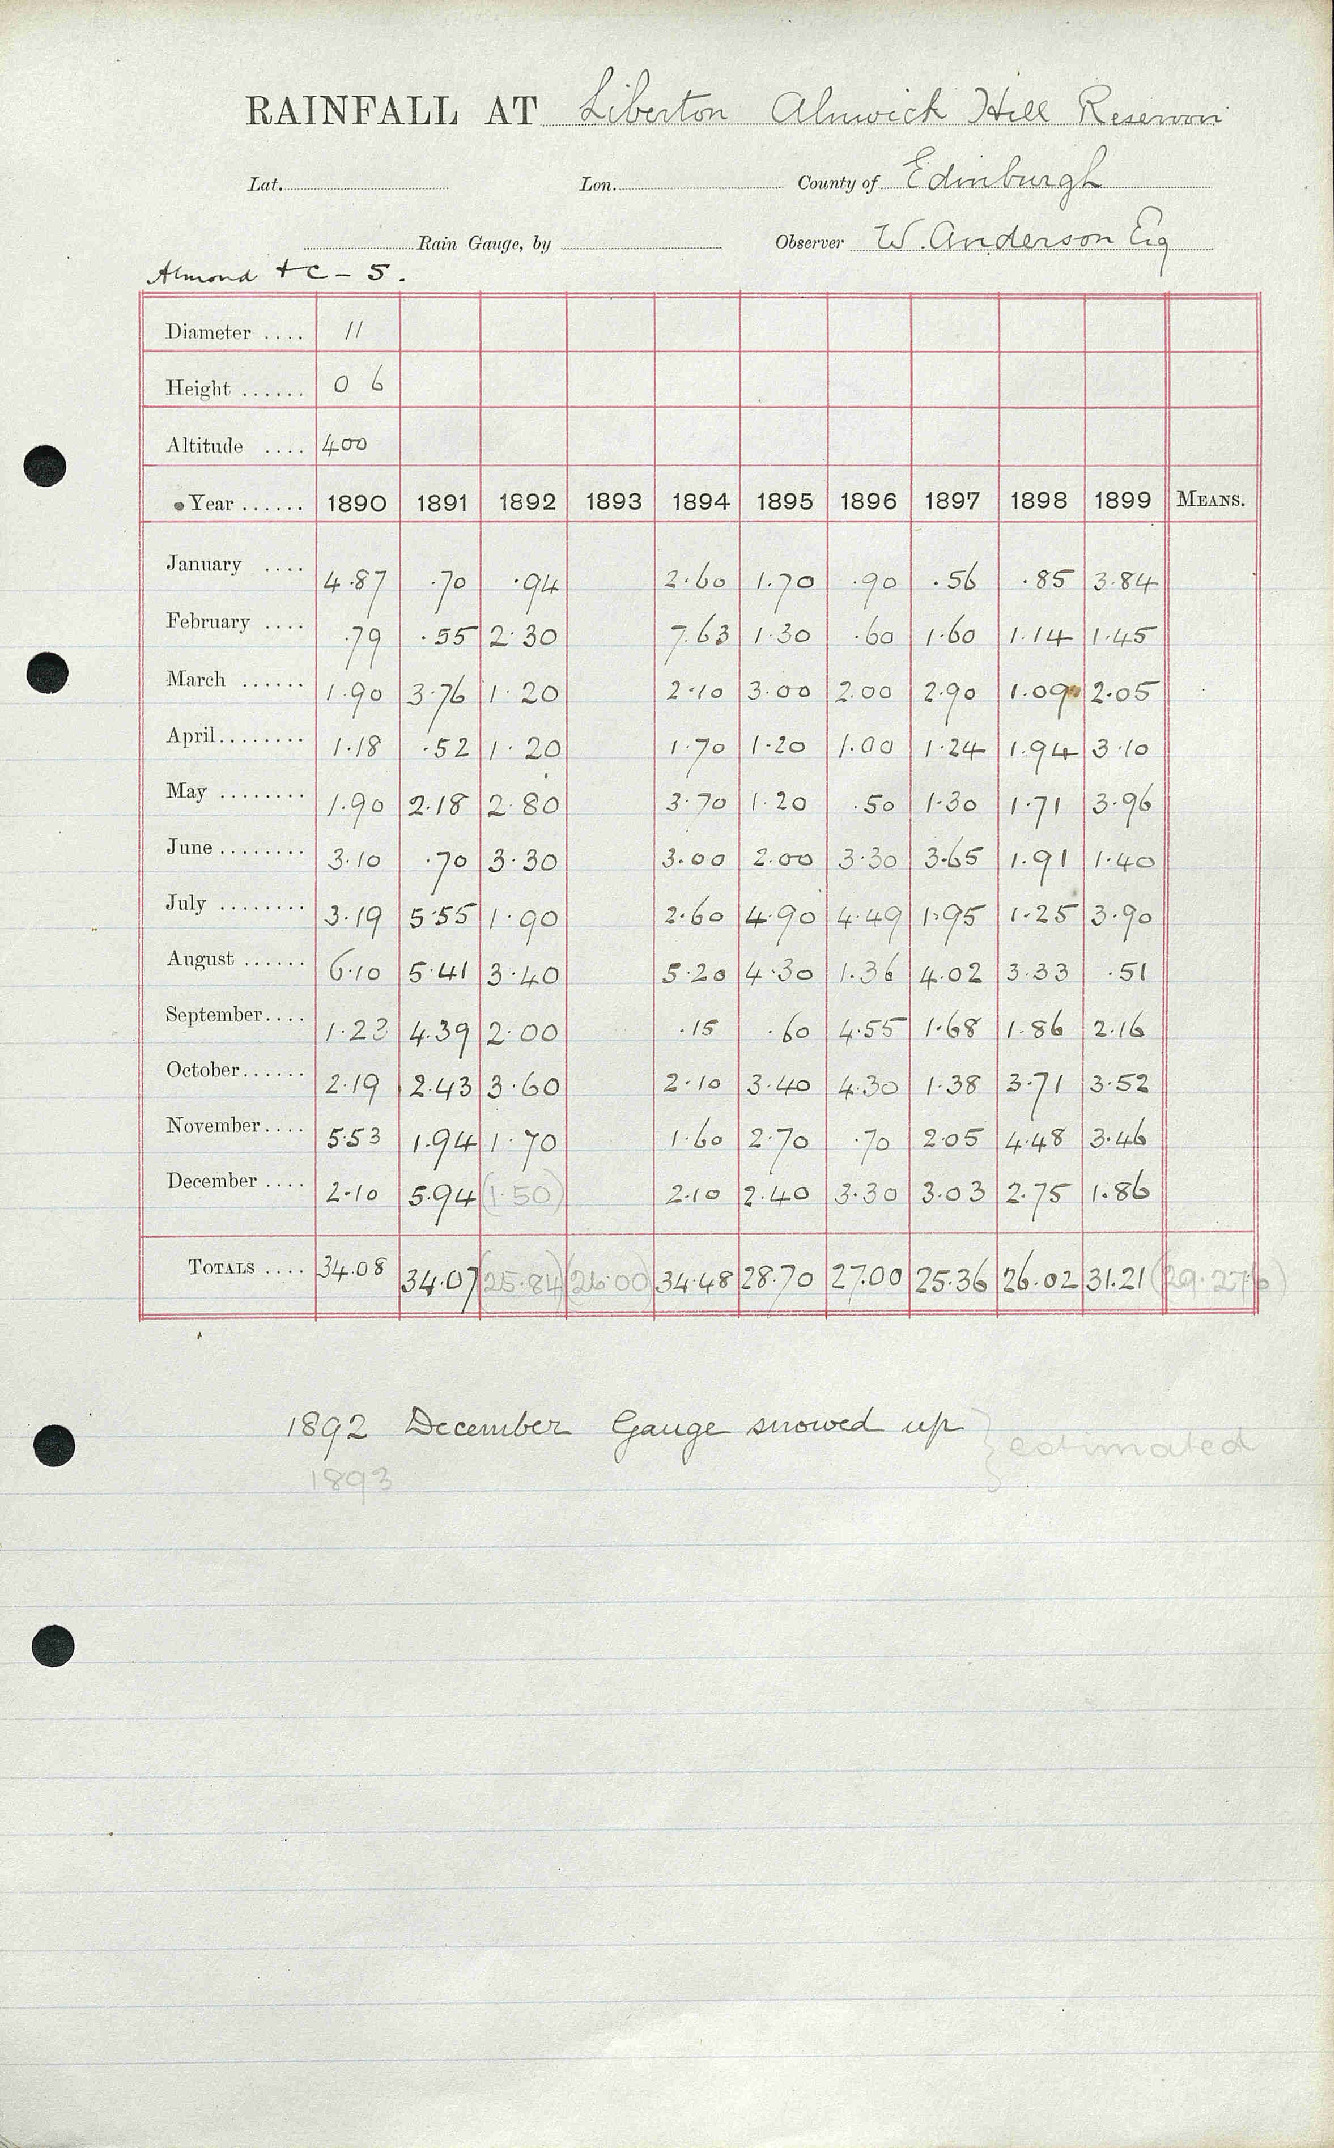 RAINFALL AT Liberton Alnwick Hill Reservoir
Lat. Lon. County of Edinburgh
Rain Gauge, by Observer W. Anderson Esq
Almond + C - 5.
Diameter .... 11
Height ...... 0 6
Altitude .... 400
Year ...... 1890 1891 1892 1893 1894 1895 1896 1897 1898 1899 MEANS.
January .... 4.87 .70 .94 2.60 1.70 .90 .56 .85 3.84
February .... .79 .55 2.30 7.63 1.30 .60 1.60 1.14 1.45
March ...... 1.90 3.76 1.20 2.10 3.00 2.00 2.90 1.09 2.05
April........ 1.18 .52 1.20 1.70 1.20 1.00 1.24 1.94 3.10
May ........ 1.90 2.18 2.80 3.70 1.20 .50 1.30 1.71 3.96
June ........ 3.10 .70 3.30 3.00 2.00 3.30 3.65 1.91 1.40
July ........ 3.19 5.55 1.90 2.60 4.90 4.49 1.95 1.25 3.90
August ...... 6.10 5.41 3.40 5.20 4.30 1.36 4.02 3.33 .51
September.... 1.23 4.39 2.00 .15 .60 4.55 1.68 1.86 2.16
October...... 2.19 2.43 3.60 2.10 3.40 4.30 1.38 3.71 3.52
November.... 5.53 1.94 1.70 1.60 2.70 .70 2.05 4.48 3.46
December .... 2.10 5.94 (1.50) 2.10 2.40 3.30 3.03 2.75 1.86
TOTALS .... 34.08 34.07 (25.84) (26.00) 34.48 28.70 27.00 25.36 26.02 31.21 (29.276)
1892 December Gauge snowed up } estimated
1893